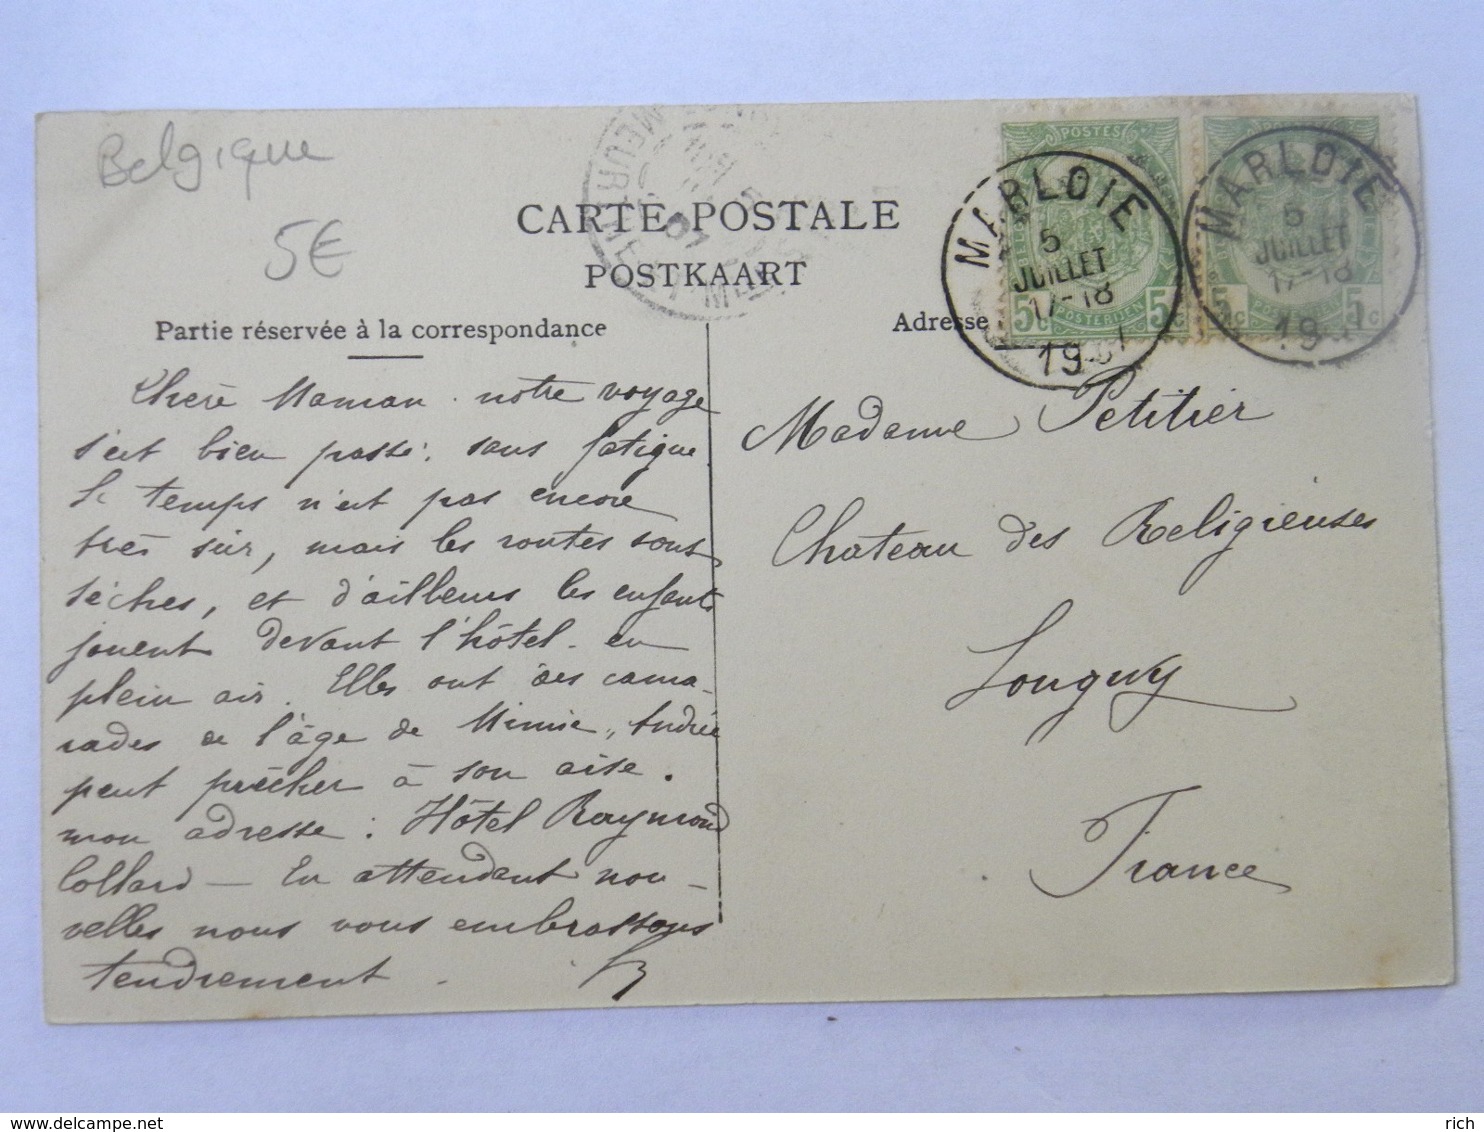 Belgique
5€
CARTE POSTALE
POSTKAART
Partie réservée à la correspondance
Adresse
POSTES
5c POSTERIJEN 5c
MARLOIE
5
JUILLET
17-18
19
MARLOIE
5
JUILLET
17-18
19
MEURTHE-ET-M
07
Chère Maman. notre voyage
s'est bien passé. sans fatigue
Le temps n'est pas encore
très sûr, mais les routes sont
sèches, et d'ailleurs les enfants
jouent devant l'hôtel - en
plein air. Elles ont des cama-
rades de l'âge de Mimie, Andrée
peut prêcher à son aise.
mon adresse : Hôtel Raymond
Collard — En attendant nou-
velles nous vous embrassons
tendrement.
Madame Petitier
Chateau des Religieuses
Longwy
France
delcampe.net
rich